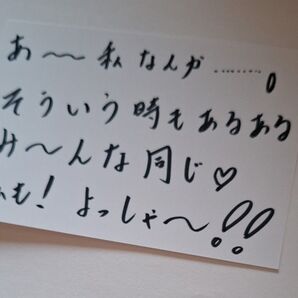 あ〜私なんか……。
そういう時もあるある
み〜んな同じ♡
も! よっしゃ〜!!